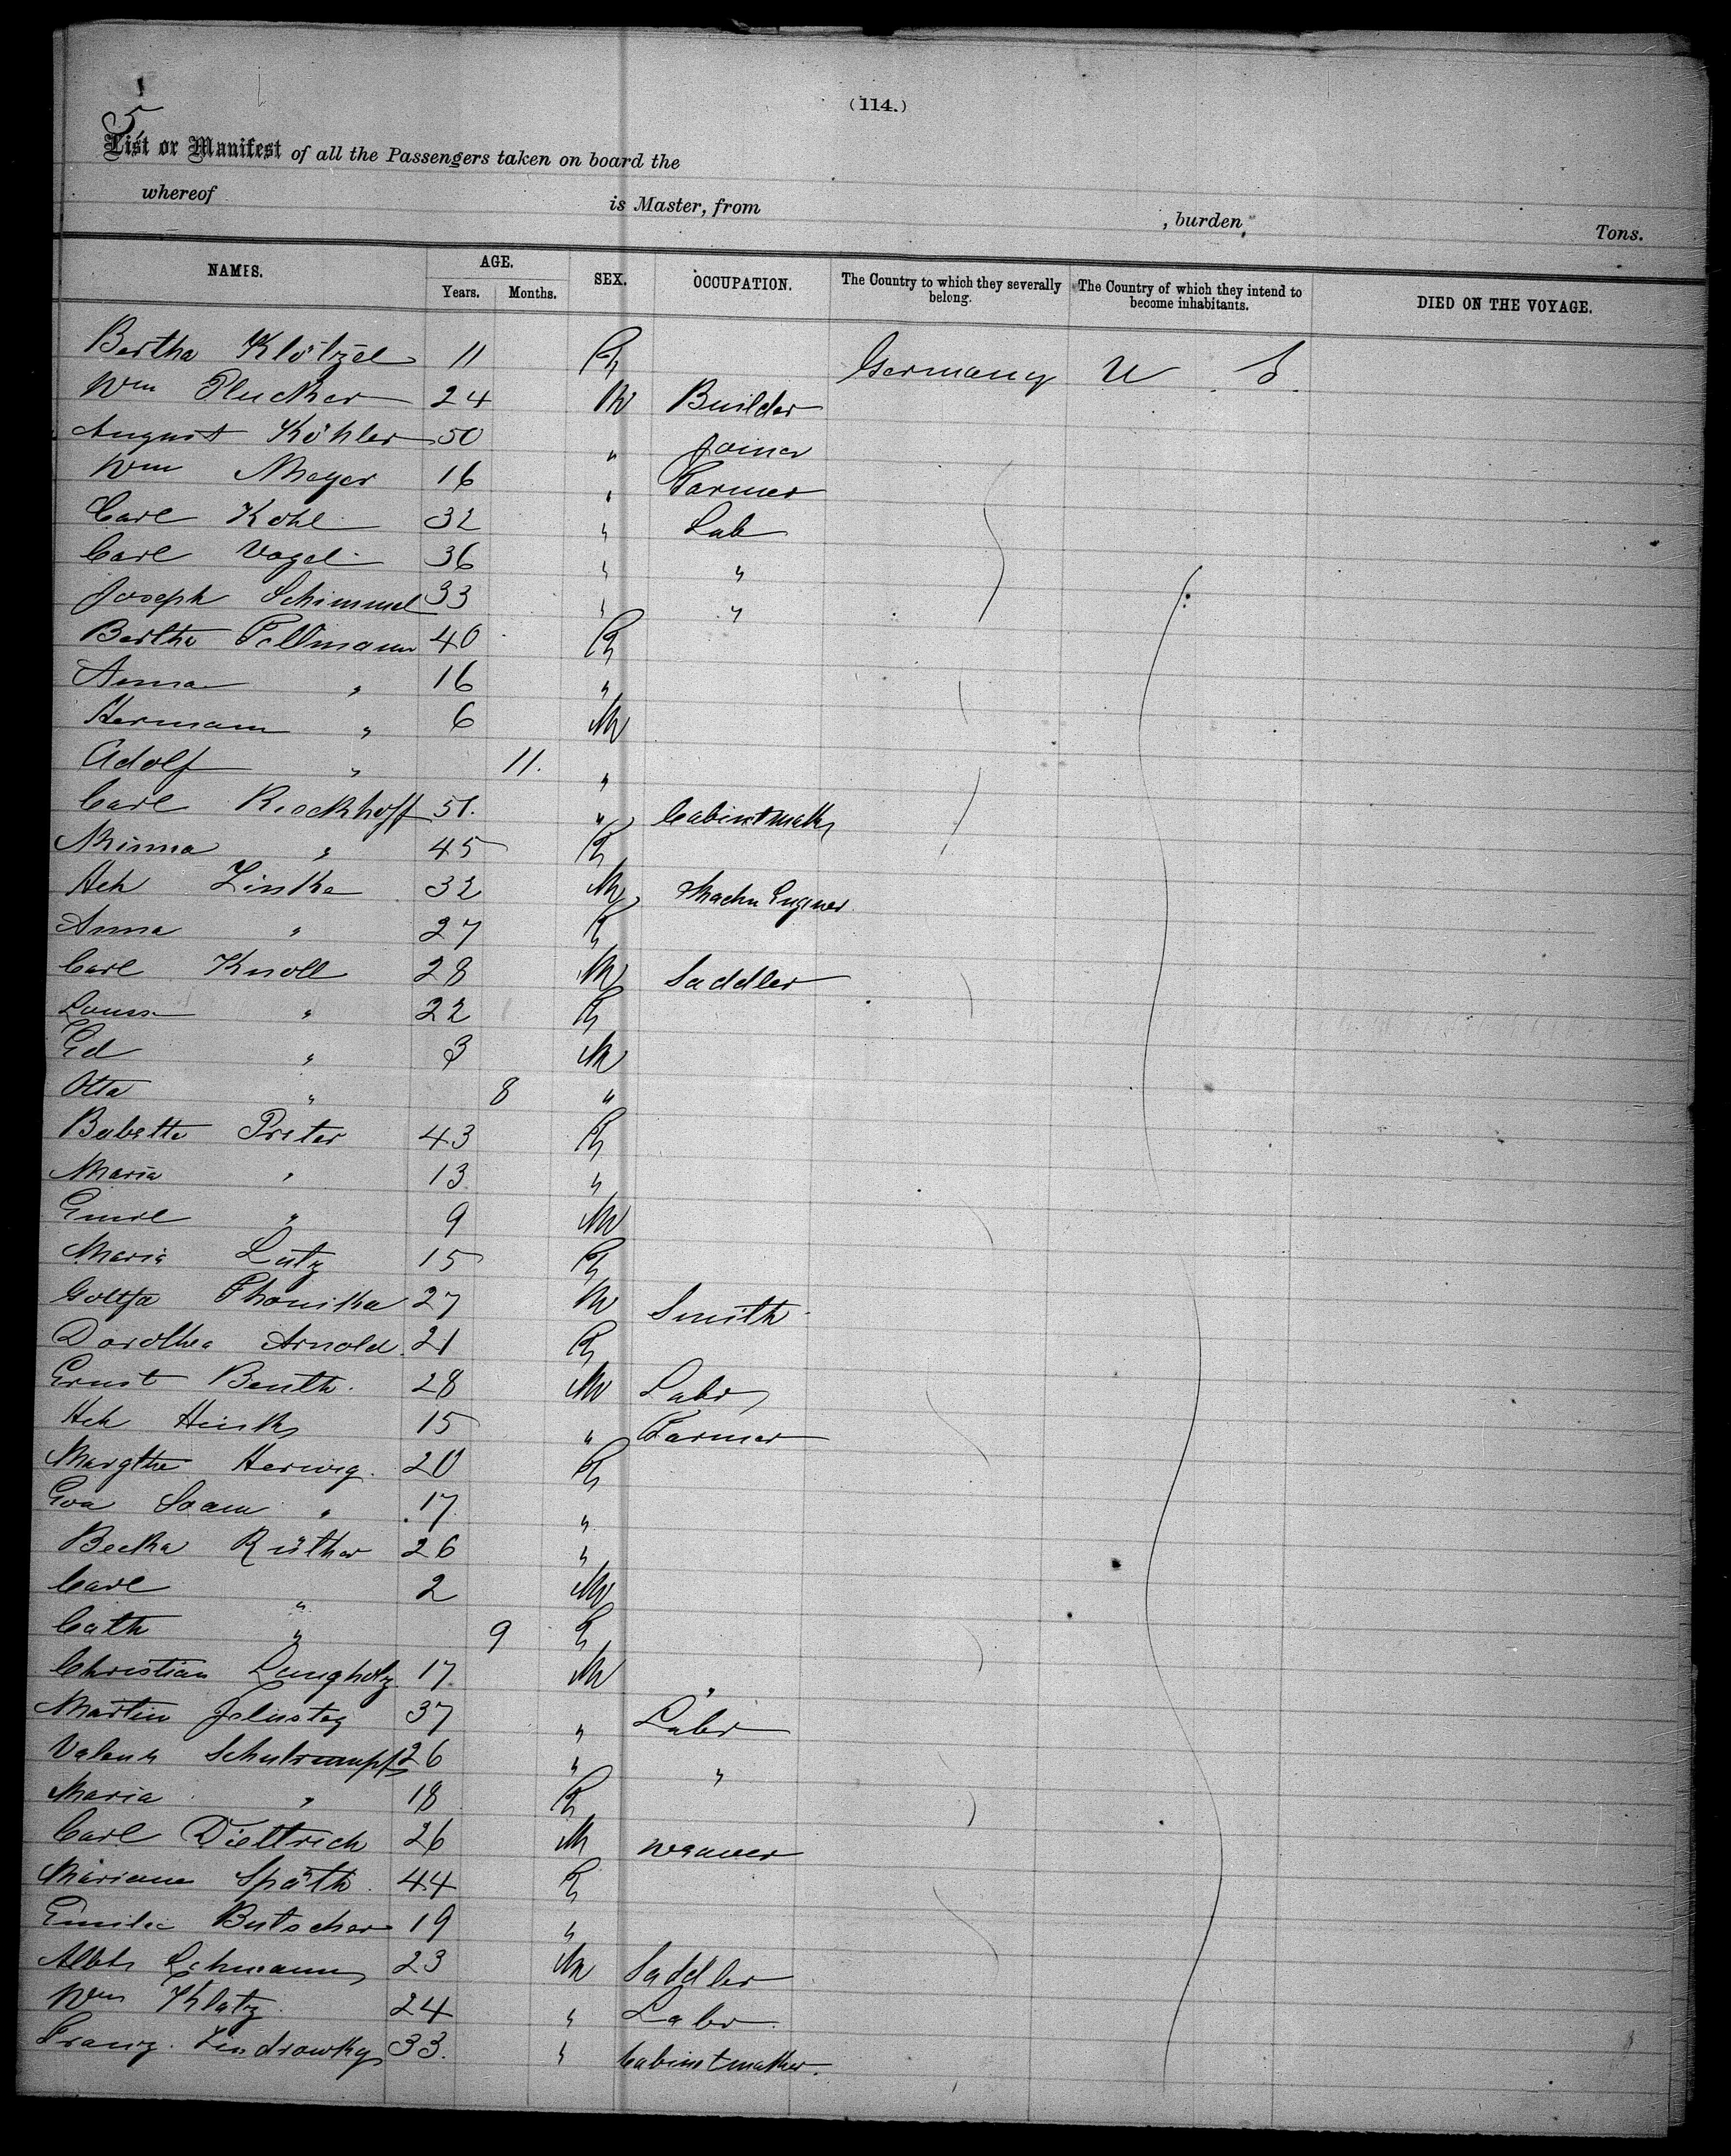 5
(114.)
List or Manifest of all the Passengers taken on board the
whereof is Master, from , burden, Tons.
NAMES. AGE. SEX. OCCUPATION. The Country to which they severally belong. The Country of which they intend to become inhabitants. DIED ON THE VOYAGE.
Years. Months.
Bertha Klötzel 11 F Germany U. S.
Wm Plucker 24 M Builder
August Köhler 50 " Joiner
Wm Meyer 16 " Farmer
Carl Kohl 32 " Lab
Carl Vogel 36 " "
Joseph Schimmel 33 " "
Bertha Fellmann 40 F
Anna " 16 "
Hermann " 6 M
Adolf " 11. "
Carl 51. " Cabinetmakr
Minna " 45 F
Hch Zinke 32 M Machn Enginer
Anna " 27 F
Carl Knoll 28 M Saddler
Louis " 22 F
Ed " 3 M
Otto " 8 "
Babette Preter 43 F
Maria " 13 "
Emil " 9 M
Maria Lutz 15 F
27 M Smith
Dorothea Arnold 21 F
Ernst Benth. 28 M Labr
Hch 15 " Farmer
Margthe Herwig. 20 F
Eva Saam " 17 "
Becka Rüther 26 "
Carl " 2 M
Cath " 9 F
Christian Langholz 17 M "
Martin 37 " Labr
26 " "
Maria " 18 F
Carl Diettrich 26 M weaver
Mariane Späth 44 F
Emilie Butscher 19 "
Albt Lehmann 23 M Saddler
Wm Klatz 24 " Labr
Franz 33. " Cabinetmaker.